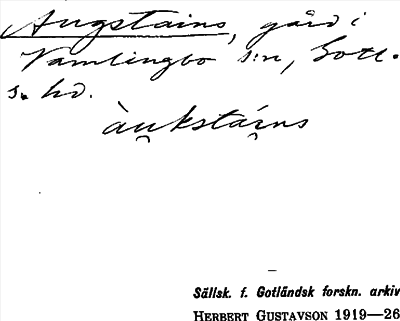 Augstains, gård i
Vamlingbo s:n, Gotl.
s. hd.
àu̯kstái̯ns
Sällsk. f. Gotländsk forskn. arkiv
HERBERT GUSTAVSON 1919—26